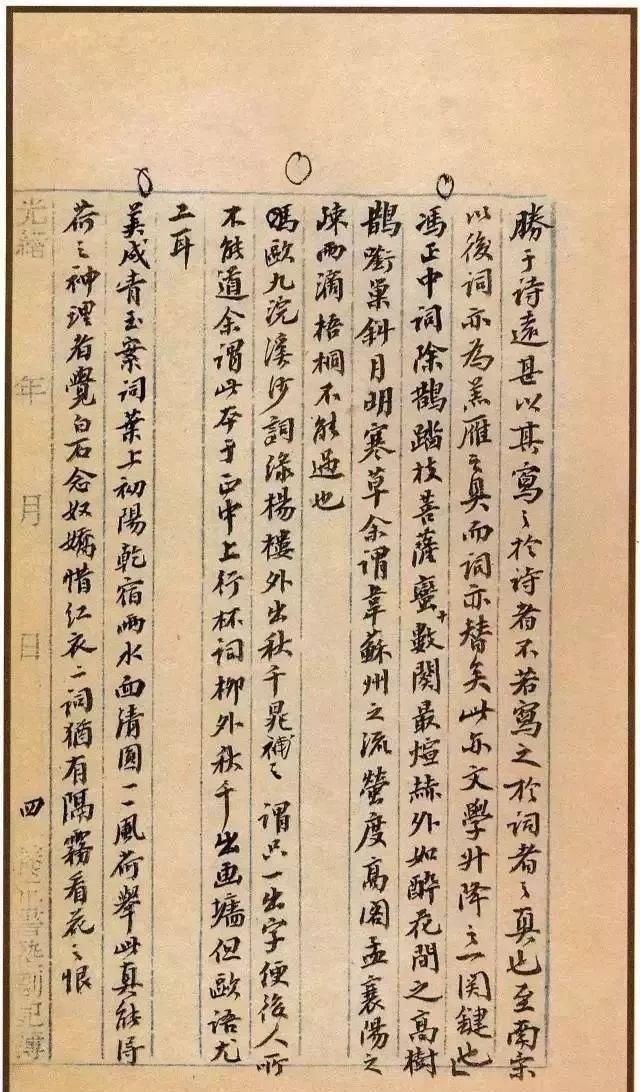 勝于詩遠甚以其寫之於詩者不若寫之於詞者之真也至南宋
以後詞亦為羔雁之具而詞亦替矣此亦文學升降之一関鍵也
馮正中詞除鵲踏枝菩薩蠻十數関最煊赫外如醉花間之高樹
鵲銜巢斜月明寒草余謂韋蘇州之流螢度高閣孟襄陽之
疎雨滴梧桐不能過也
歐九浣溪沙詞綠楊樓外出秋千晁補之謂只一出字便後人所
不能道余謂此本于正中上行杯詞柳外秋千出画墻但歐語尤
工耳
美成青玉案詞葉上初陽乾宿雨水面清圓一一風荷舉此真能得
荷之神理者覺白石念奴嬌惜紅衣二詞猶有隔霧看花之恨
光緒 年 月 日 四